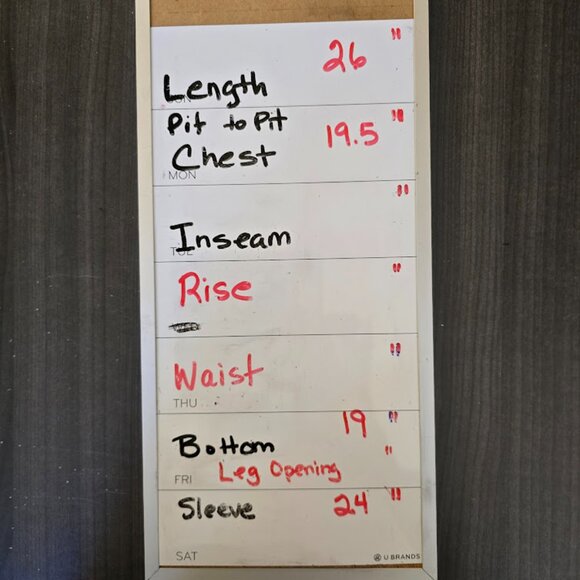 26 "
Length
Pit to Pit
Chest 19.5 "
MON
"
Inseam
Rise "
Waist "
THU
19 "
Bottom
FRI Leg Opening "
Sleeve 24 "
SAT U BRANDS